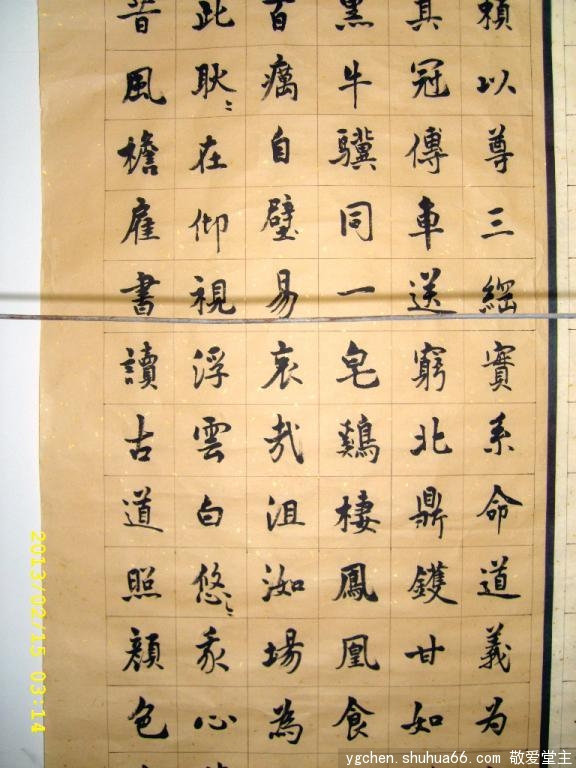 賴以尊三綱實系命道義為
其冠傳車送窮北鼎鑊甘如
黑牛驥同一皂鷄棲鳳凰食
百癘自壁易哀哉沮洳場為
此耿々在仰視浮雲白悠々我心
昔風檐展書讀古道照顏色
2013/02/15 03:14
ygchen.shuhua66.com 敬爱堂主